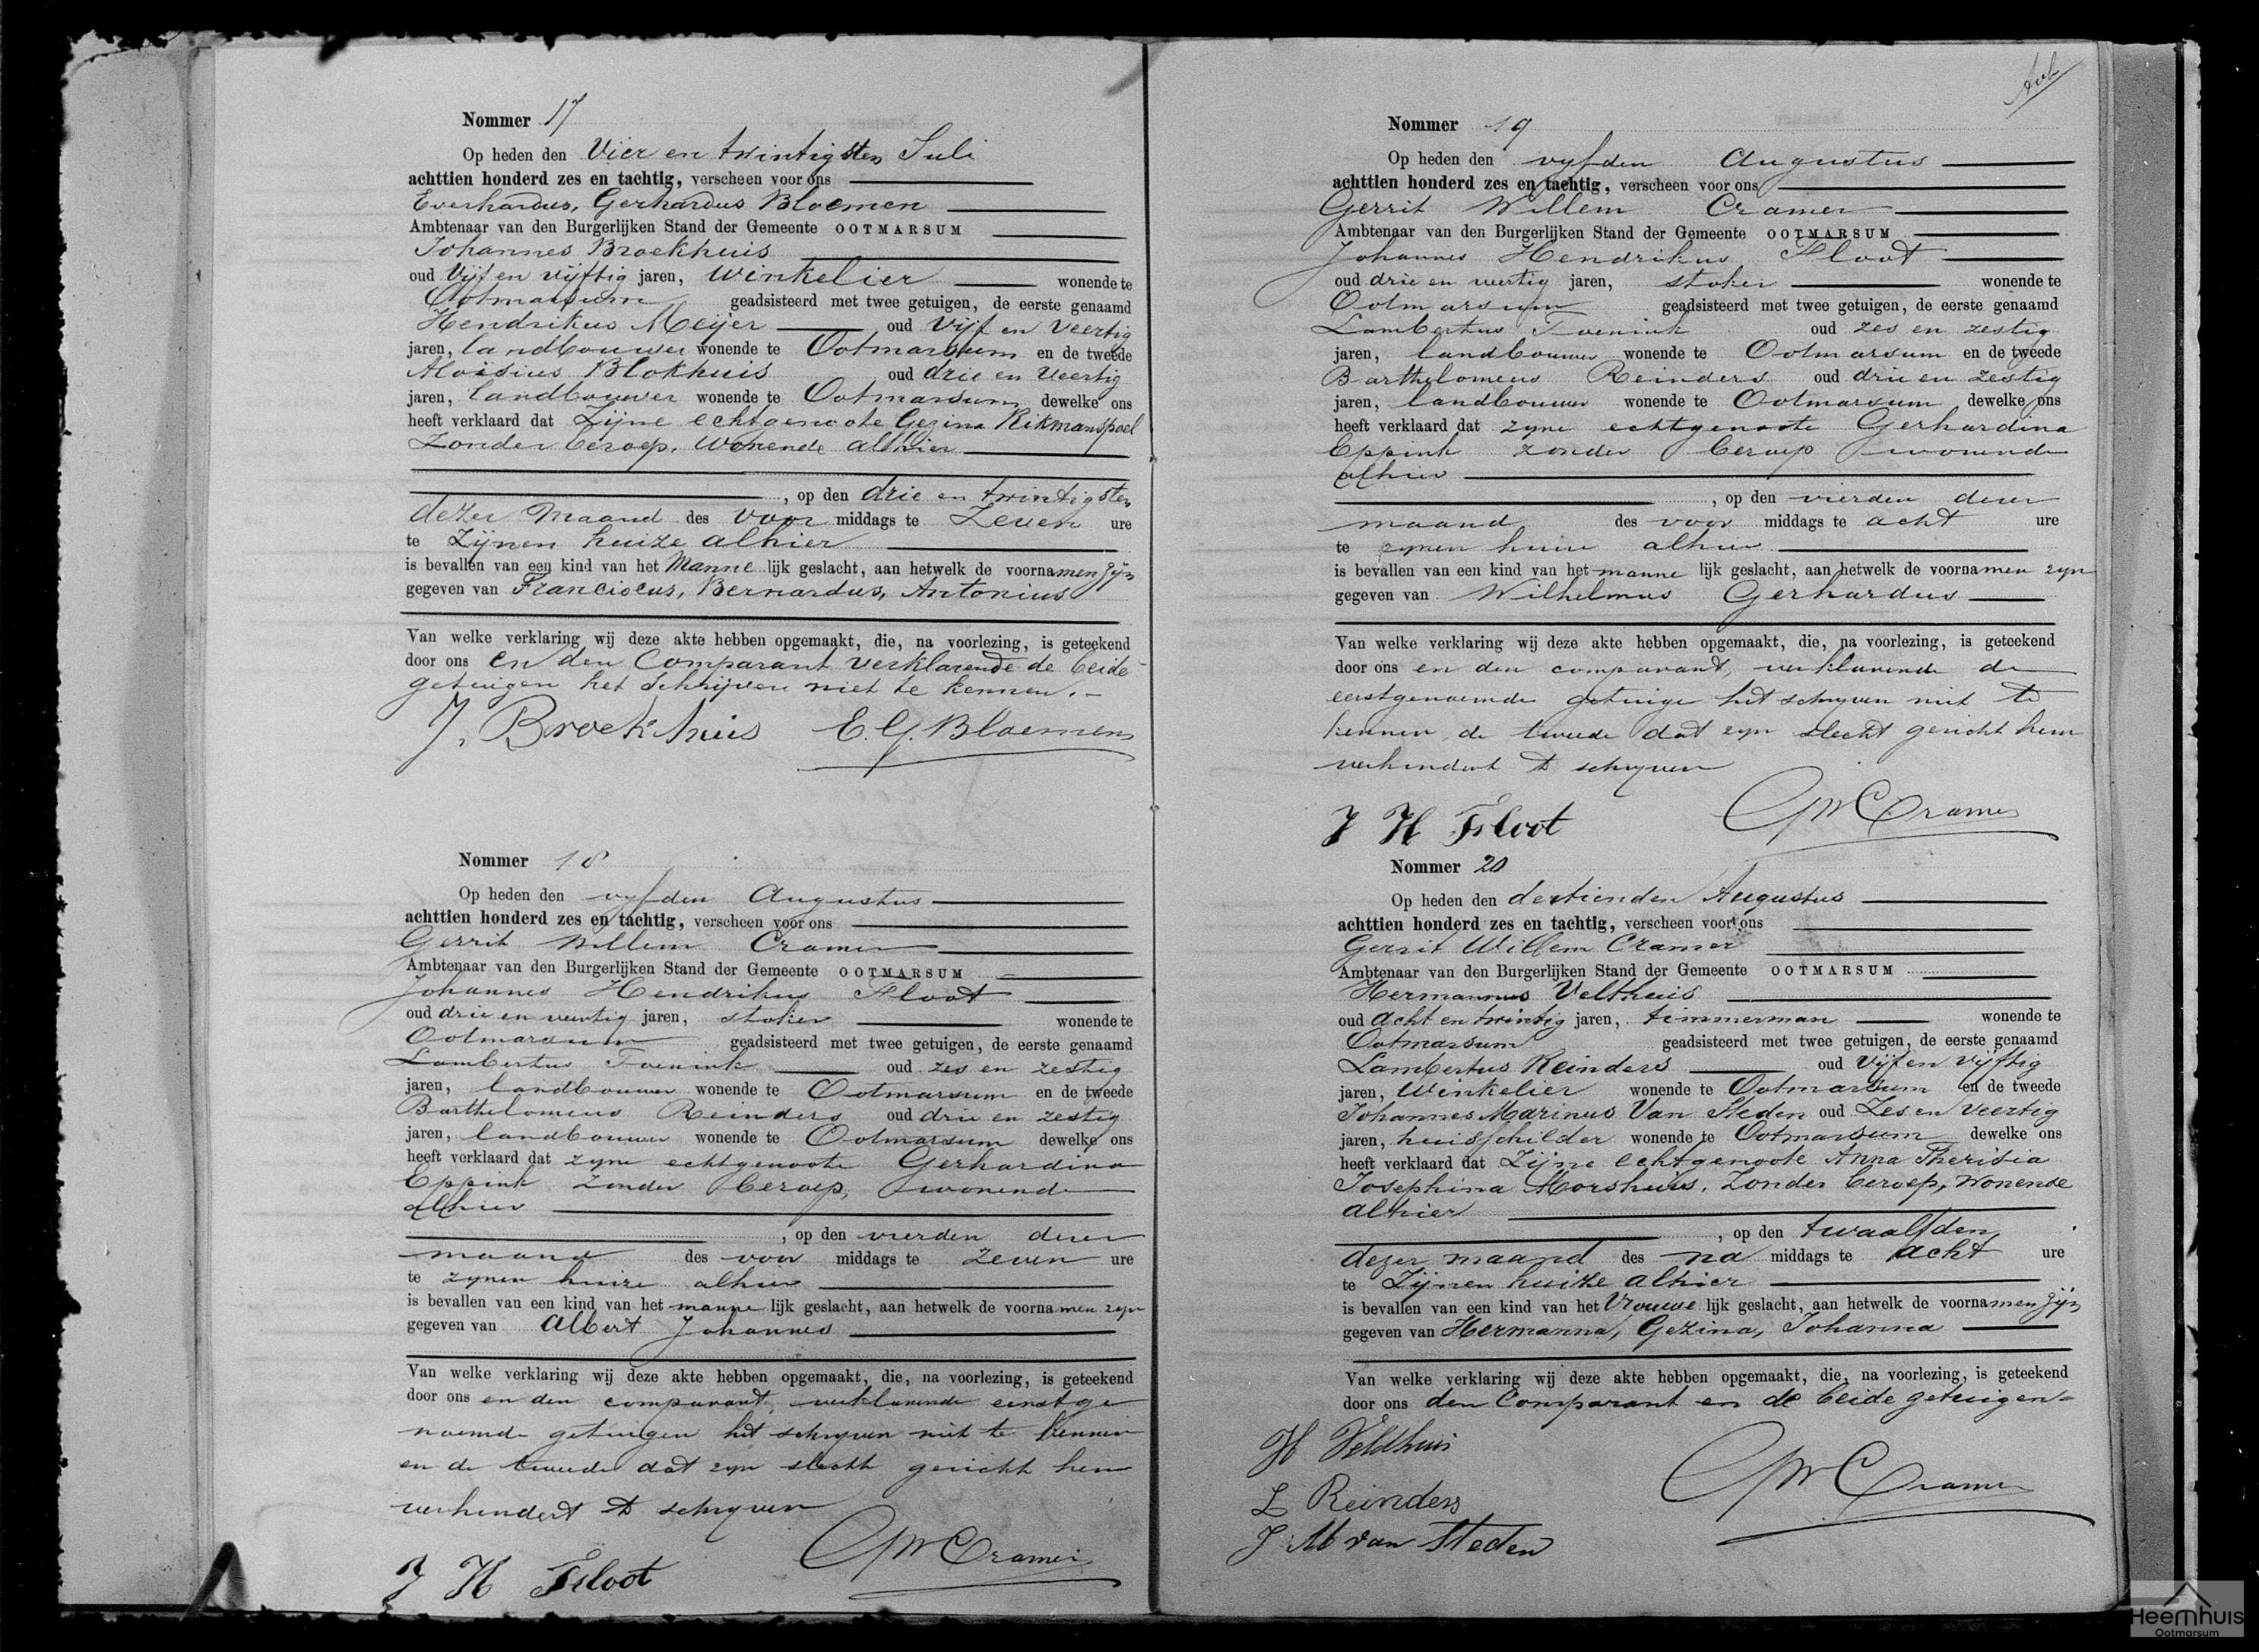 Nommer 17
Op heden den Vier en twintigsten Juli
achttien honderd zes en tachtig, verscheen voor ons
Everhardus, Gerhardus Bloemen
Ambtenaar van den Burgerlijken Stand der Gemeente OOTMARSUM
Johannes Broekhuis
oud Vijf en vijftig jaren, winkelier wonende te
Ootmarsum geadsisteerd met twee getuigen, de eerste genaamd
Hendrikus Meijer oud Vijf en Veertig
jaren, landbouwer wonende te Ootmarsum en de tweede
Aloisius Blokhuis oud drie en Veertig
jaren, landbouwer wonende te Ootmarsum dewelke ons
heeft verklaard dat Zijne echtgenoote Gezina Rikmanspoel
Zonder beroep, Wonende alhier
, op den drie en twintigsten
dezer Maand des Voor middags te Zeven ure
te Zijnen huize alhier
is bevallen van een kind van het Manne lijk geslacht, aan hetwelk de voornamen zijn
gegeven van Franciscus, Bernardus, Antonius
Van welke verklaring wij deze akte hebben opgemaakt, die, na voorlezing, is geteekend
door ons en den Comparant verklarende de beide
getuigen het Schrijven niet te kennen.-
J. Broekhuis E.G. Bloemen
Nommer 18
Op heden den vyfden Augustus
achttien honderd zes en tachtig, verscheen voor ons
Gerrit Willem Cramer
Ambtenaar van den Burgerlijken Stand der Gemeente OOTMARSUM
Johannes Hendrikus Floot
oud drie en veertig jaren, stoker wonende te
Ootmarsum geadsisteerd met twee getuigen, de eerste genaamd
Lambertus Toenink oud zes en zestig
jaren, landbouwer wonende te Ootmarsum en de tweede
Bartholomeus Reinders oud drie en zestig
jaren, landbouwer wonende te Ootmarsum dewelke ons
heeft verklaard dat zyne echtgenoote Gerhardina
Eppink zonder beroep, wonende
alhier
, op den vierden dezer
maand des voor middags te zeven ure
te zynen huize alhier
is bevallen van een kind van het manne lijk geslacht, aan hetwelk de voornamen zyn
gegeven van Albert Johannes
Van welke verklaring wij deze akte hebben opgemaakt, die, na voorlezing, is geteekend
door ons en den comparant, verklarende eerstge
noemde getuigen het schryven niet te kennen
en de tweede dat zyn slecht gezicht hem
verhindert te schryven
J H Floot GW Cramer
Nommer 19
Op heden den vyfden Augustus
achttien honderd zes en tachtig, verscheen voor ons
Gerrit Willem Cramer
Ambtenaar van den Burgerlijken Stand der Gemeente OOTMARSUM
Johannes Hendrikus Floot
oud drie en veertig jaren, stoker wonende te
Ootmarsum geadsisteerd met twee getuigen, de eerste genaamd
Lambertus Toenink oud zes en zestig
jaren, landbouwer wonende te Ootmarsum en de tweede
Bartholomeus Reinders oud drie en zestig
jaren, landbouwer wonende te Ootmarsum dewelke ons
heeft verklaard dat zyne echtgenoote Gerhardina
Eppink zonder beroep wonende
alhier
, op den vierden dezer
maand des voor middags te acht ure
te zynen huize alhier
is bevallen van een kind van het manne lijk geslacht, aan hetwelk de voornamen zyn
gegeven van Wilhelmus Gerhardus
Van welke verklaring wij deze akte hebben opgemaakt, die, na voorlezing, is geteekend
door ons en den comparant, verklarende de
eerstgenoemde getuige het schryven niet te
kennen, de tweede dat zyn slecht gezicht hem
verhindert te schryven
J H Floot GW Cramer
Nommer 20
Op heden den dertienden Augustus
achttien honderd zes en tachtig, verscheen voor ons
Gerrit Willem Cramer
Ambtenaar van den Burgerlijken Stand der Gemeente OOTMARSUM
Hermannus Velthuis
oud acht en twintig jaren, timmerman wonende te
Ootmarsum geadsisteerd met twee getuigen, de eerste genaamd
Lambertus Reinders oud Vijf en Vijftig
jaren, Winkelier wonende te Ootmarsum en de tweede
Johannes Marinus Van Steden oud Zes en Veertig
jaren, huisschilder wonende te Ootmarsum dewelke ons
heeft verklaard dat Zijne echtgenoote Anna Therisia
Josephina Morshuis, Zonder beroep, Wonende
alhier
, op den twaalfden
dezer maand des na middags te acht ure
te Zijnen huize alhier
is bevallen van een kind van het Vrouwe lijk geslacht, aan hetwelk de voornamen zijn
gegeven van Hermanna, Gezina, Johanna
Van welke verklaring wij deze akte hebben opgemaakt, die, na voorlezing, is geteekend
door ons den Comparant en de beide getuigen
H Veldhuis
L Reinders GW Cramer
J. M van Steden
Heemhuis
Ootmarsum